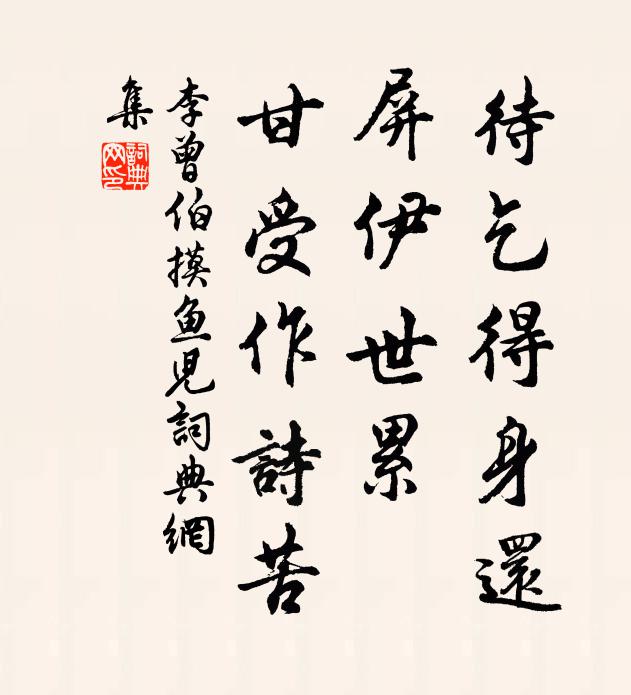 待乞得身還
屏伊世累
甘受作詩苦
李曾伯摸魚兒詞典網
集
詞典網印